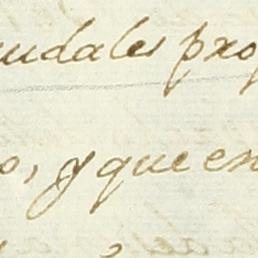 udales pro
o, y que en